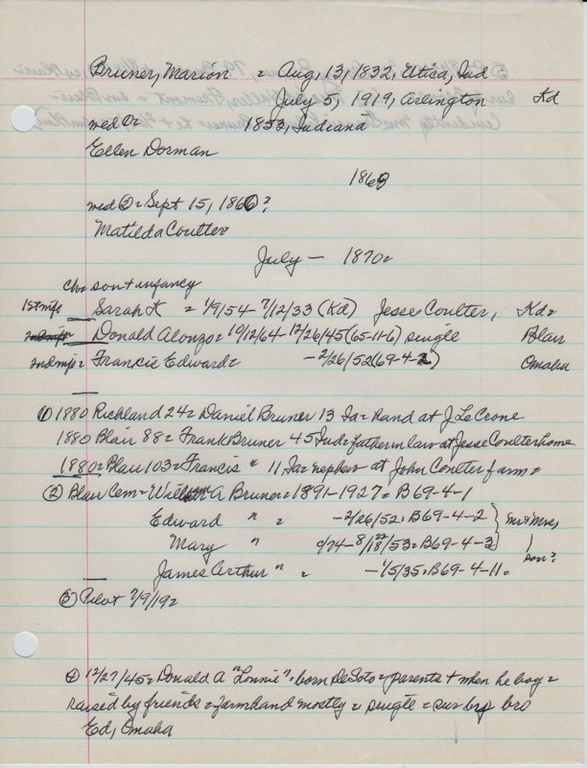 Bruner, Marion = Aug, 13, 1832, Utica, Ind
July 5, 1919, Arlington Kd
med ① 1853, Indiana
Ellen Dorman
1868
med ② = Sept 15, 1860?
Matilda Coulter
July — 1870=
ch= son + infancy
1st wife Sarah K = 1/9/54 - 7/12/33 (Kd) Jesse Coulter, Kd=
2nd wife Donald Alonzo = 10/12/64 - 12/26/45 (65-11-6) single Blair
2nd wife = Francis Edward = - 2/26/52 (69-4-2) Omaha
① 1880 Richland 24 = Daniel Bruner 13 Ia = hand at J LeCrone
1880 Blair 88 = Frank Bruner 45 Ind = father in law at Jesse Coulter home
1880 = Blair 103 = Francis " 11 Ia = nephew at John Coulter farm =
② Blair Cem = William A Bruner = 1891-1927 = B69-4-1
Edward " = - 2/26/52 = B69-4-2 } Mr + Mrs,
Mary " 9/74 - 8/18/53 = B69-4-3 }
James Arthur " = - 1/5/35 = B69-4-11 = son?
③ Pilot 7/9/19 =
④ 12/27/45 = Donald A "Lonnie" = born DeSoto = parents + when he boy =
raised by friends = farmhand mostly = single = sur bro
Ed, Omaha